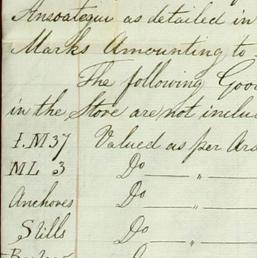 Ansoategui as detailed in
Marks Amounting to
The following Goo
in the Store are not inclu
I.M 37 Valued as per
ML 3 Do " 
Anchoves Do "
Stills Do "